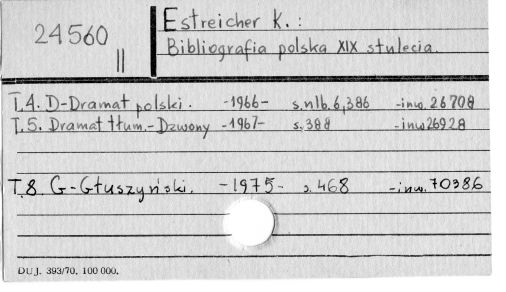 24560
II
Estreicher K.:
Bibliografia polska XIX stulecia.
T.4. D-Dramat polski. -1966- s.nlb.6,386 -inw.26708
T.5. Dramat tłum.-Dzwony -1967- s.388 -inw26928
T.8. G-Głuszyński. -1975- s.468 -inw.70386
DUJ. 393/70. 100 000.